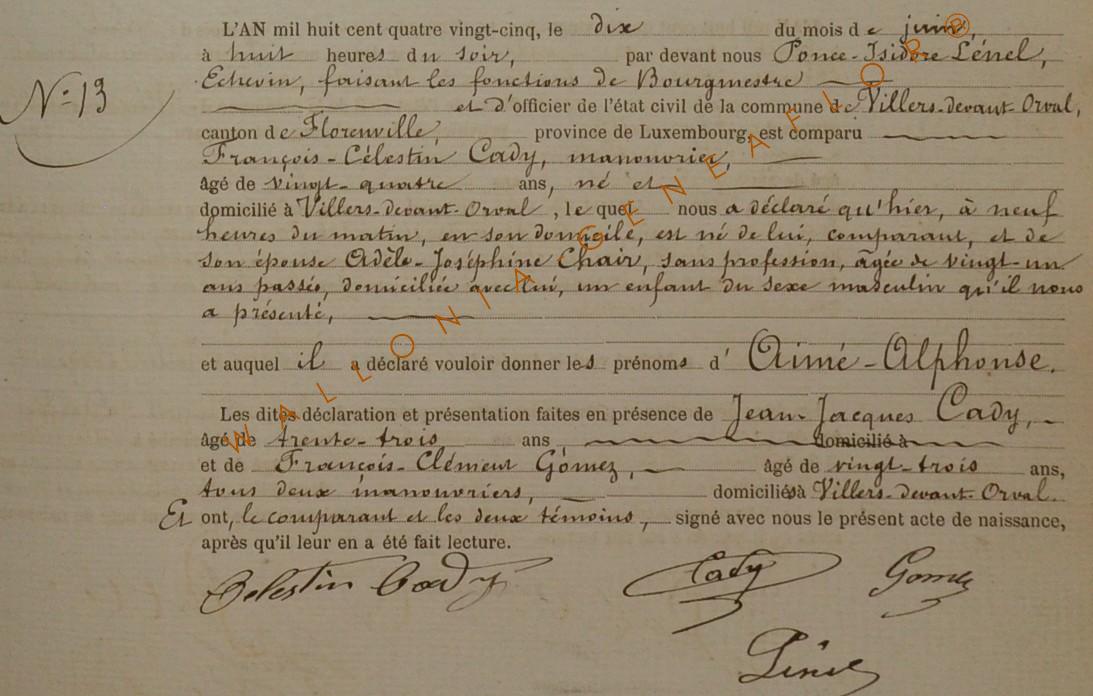 L'AN mil huit cent quatre vingt-cinq, le dix du mois de juin,
à huit heures du soir, par devant nous Ponce-Isidore Lénel,
Echevin, faisant les fonctions de Bourgmestre
et d'officier de l'état civil de la commune de Villers-devant-Orval,
N° 13
canton de Florenville, province de Luxembourg, est comparu
François-Célestin Cady, manouvrier,
âgé de vingt-quatre ans, né et
domicilié à Villers-devant-Orval, lequel nous a déclaré qu'hier, à neuf
heures du matin, en son domicile, est né de lui, comparant, et de
son épouse Adèle-Joséphine Chair, sans profession, âgée de vingt-un
ans passés, domiciliée avec lui, un enfant du sexe masculin qu'il nous
a présenté,
et auquel il a déclaré vouloir donner les prénoms d' Aimé-Alphonse.
Les dites déclaration et présentation faites en présence de Jean-Jacques Cady,
âgé de trente-trois ans domicilié à
et de François-Clément Gomez, âgé de vingt-trois ans,
tous deux manouvriers, domiciliés à Villers-devant-Orval.
Et ont, le comparant et les deux témoins, signé avec nous le présent acte de naissance,
après qu'il leur en a été fait lecture.
Celestin Cady Cady Gomez
Lénel
WALLONIA GENEAFLOBB®